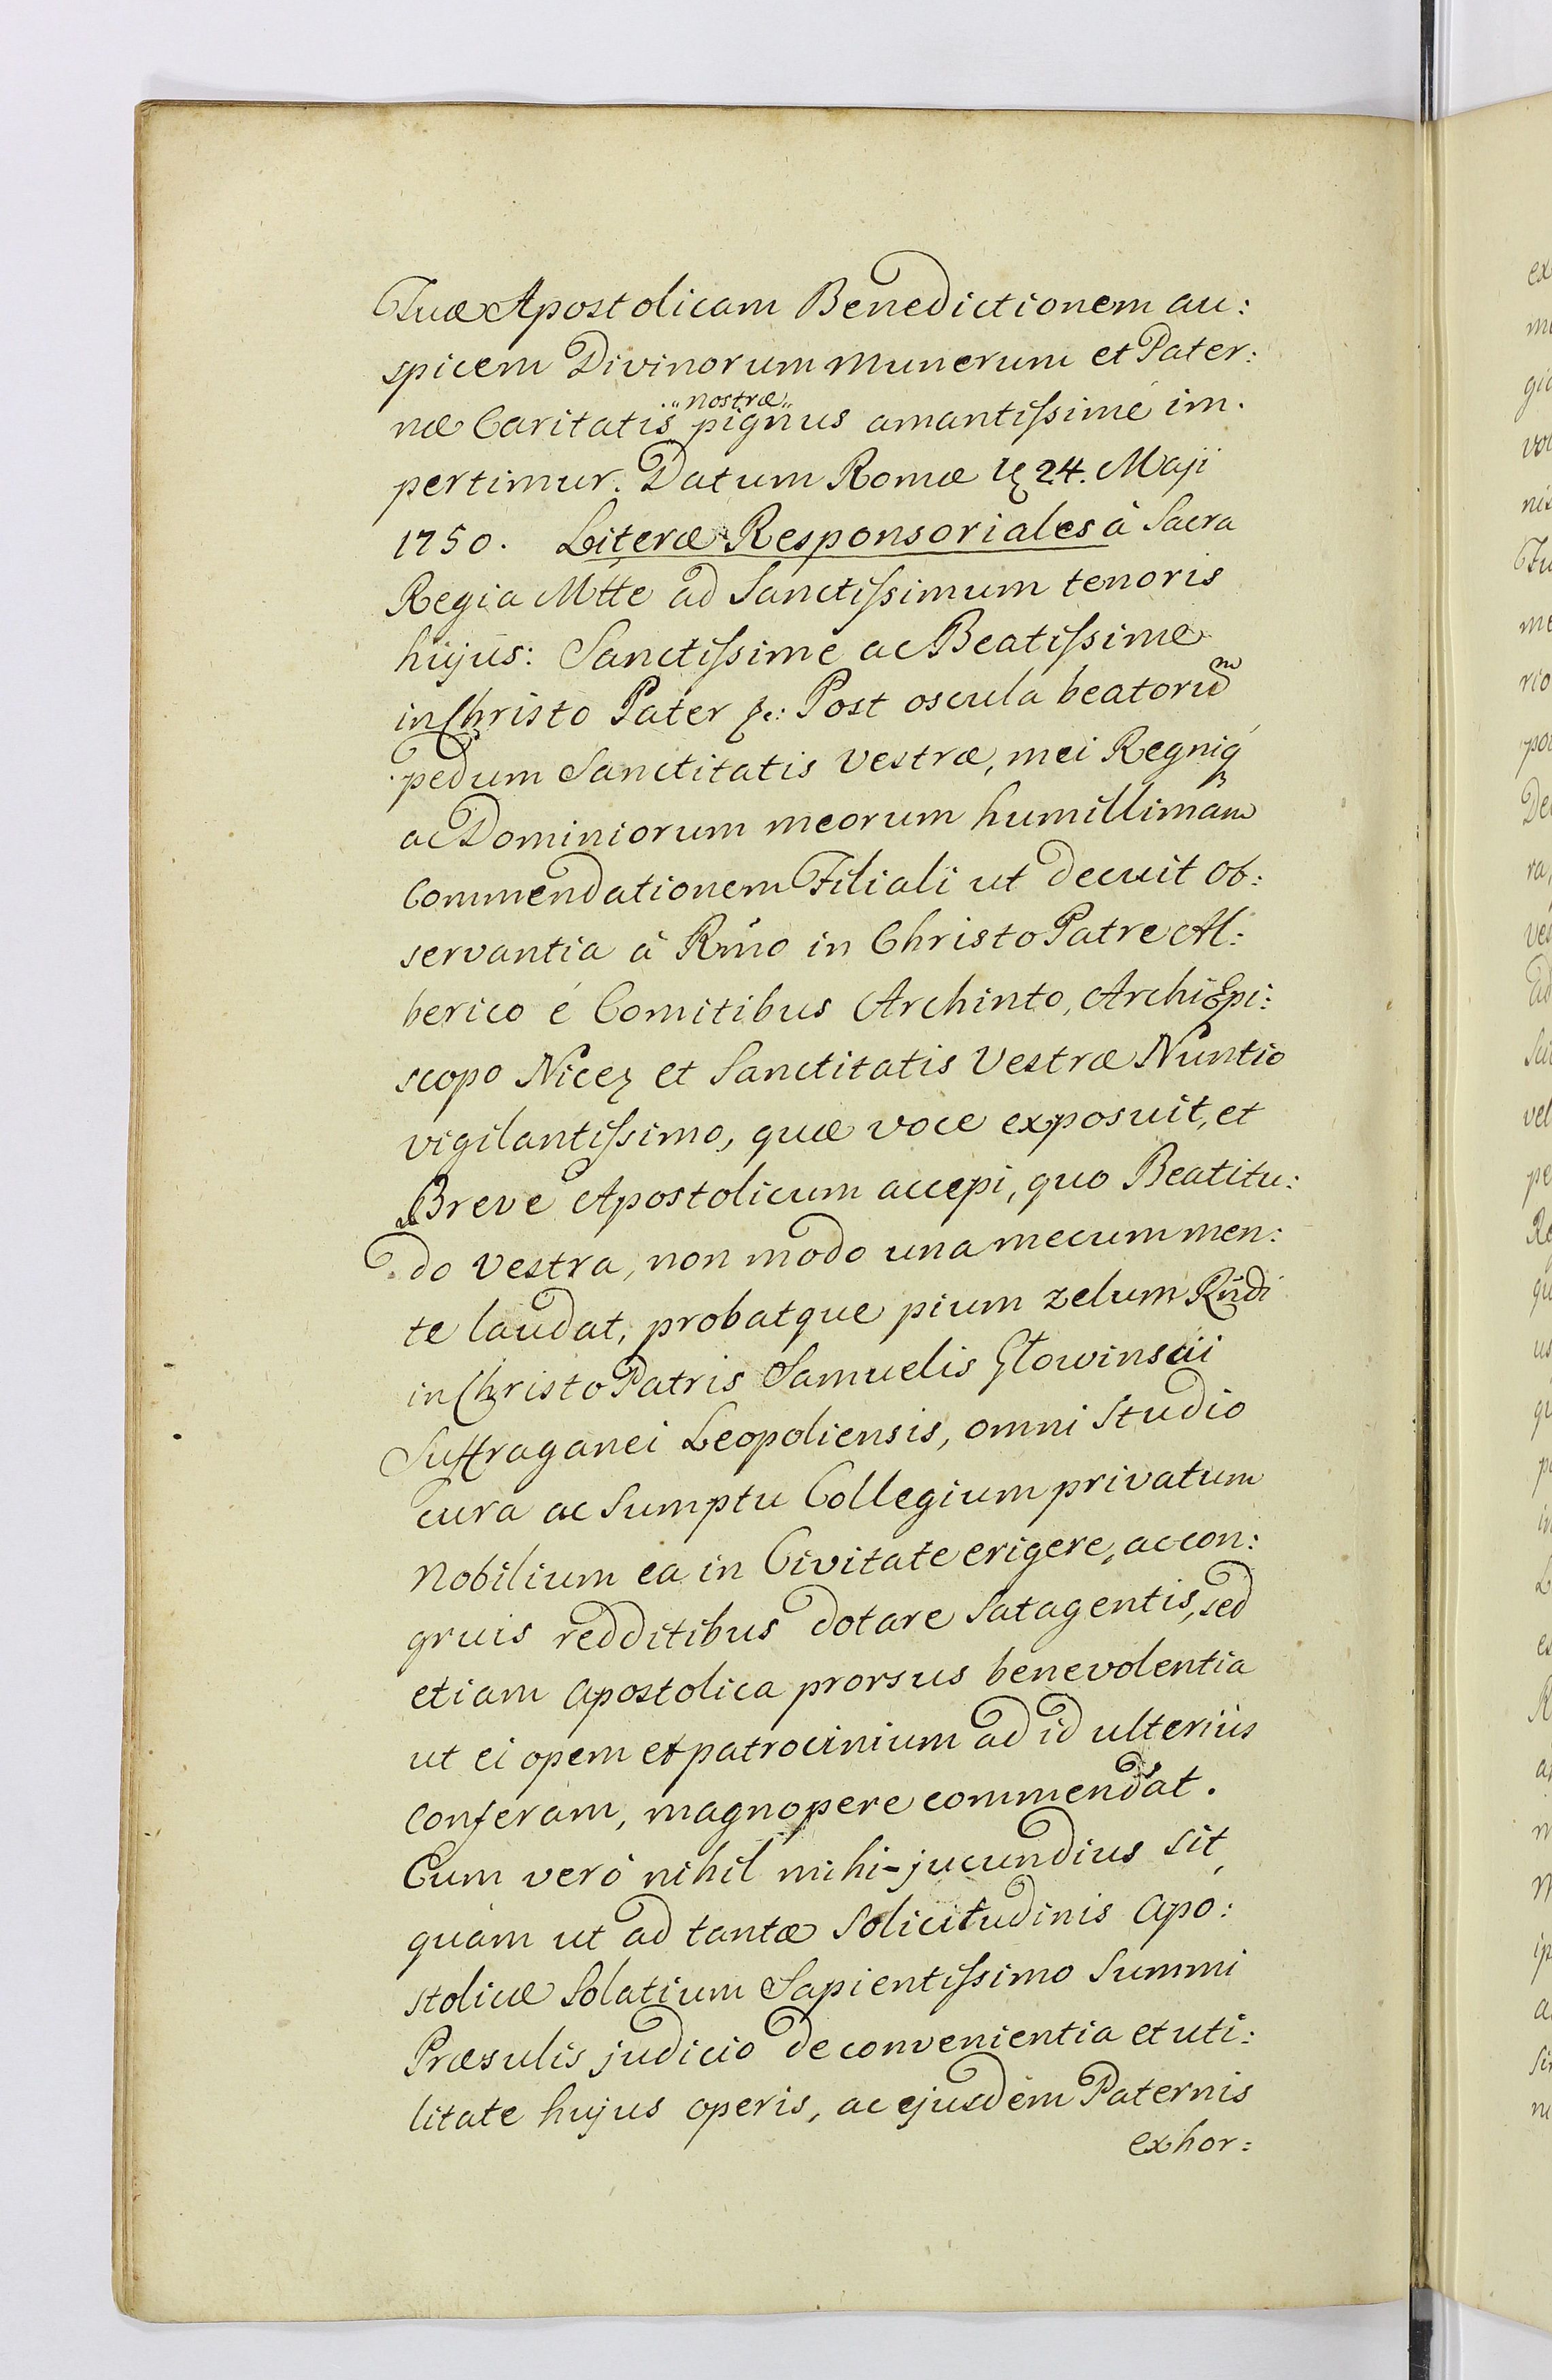 Tuæ Apostolicam Benedictionem au:
spicem Divinorum munerum et Pater:
næ Caritatis nostræ pignus amantissimè im.
pertimur. Datum Romæ 24. Maji
1750. Literæ Responsoriales à Sacra
Regia Mtte ad Sanctissimum tenoris
hujus: Sanctissime ac Beatissime
in Christo Pater &c: Post oscula beatorũ
pedum Sanctitatis Vestræ, mei Regniq́
ac Dominiorum meorum humillimam
Commendationem Filiali ut decuit ob:
servantia à Rm̃o in Christo Patre Al:
berico é Comitibus Archinto, ArchiEpi:
scopo Niceę et Sanctitatis Vestræ Nuntio
vigilantissimo, quæ voce exposuit, et
Breve Apostolicum accepi, quo Beatitu:
do Vestra, non modo una mecum men:
te laudat, probatque pium zelum Rñdi
in Christo Patris Samuelis Głowinscii
Suffraganei Leopoliensis, omni Studio
cura ac Sumptu Collegium privatum
Nobilium ea in Civitate erigere, ac con:
gruis redditibus dotare Satagentis, sed
etiam Apostolica prorsus benevolentia
ut ei opem et patrocinium ad id ulteriùs
conferam, magnopere commendat.
Cum verò nihil mihi jucundius sit,
quàm ut ad tantæ Solicitudinis Apo:
stolicæ Solatium Sapientissimo Summi
Præsulis judicio de convenientia et uti:
litate hujus operis, ac ejusdem Paternis
exhor: